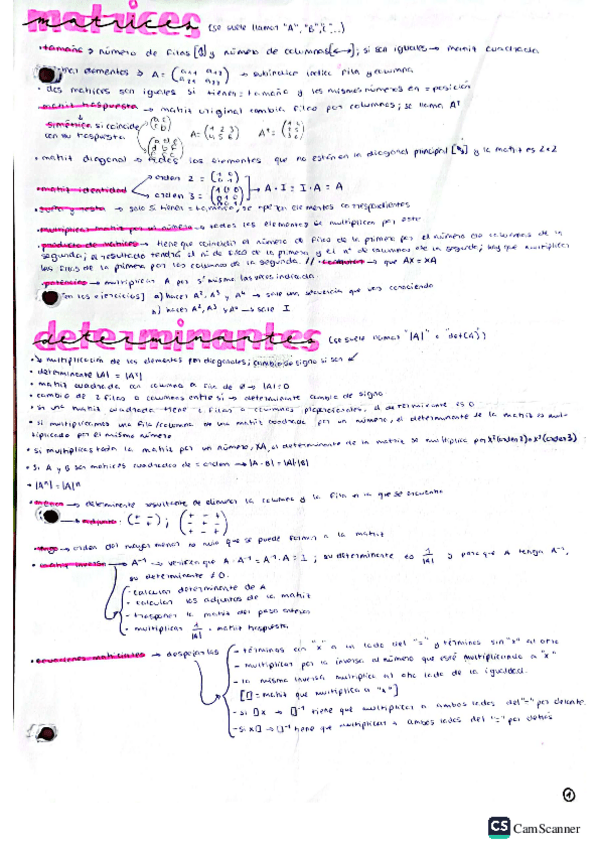 matrices (se suele llamar "A", "B", C...)
· tamaño → número de filas [↕] y número de columnas [↔]; si son iguales → matriz cuadrada
elementos → A = → subíndice indica fila y columna
· dos matrices son iguales si tienen = tamaño y los mismos números en = posición
· matriz traspuesta → matriz original cambia filas por columnas; se llama Aᵗ
simétrica si coincide con su traspuesta A = (1 2 3 / 4 5 6) Aᵗ = (1 4 / 2 5 / 3 6)
· matriz diagonal → los elementos que no están en la diagonal principal y la matriz es 2x2
· matriz identidad → orden 2 = (1 0 / 0 1)
→ orden 3 = (1 0 0 / 0 1 0 / 0 0 1) → A · I = I · A = A
· suma y resta → solo si tienen = tamaño, se elementos correspondientes
· multiplicar matriz por un número → todos los elementos se multiplican por este
· producto de matrices → tiene que coincidir el número de filas de la primera por el número de columnas de la
segunda; el resultado tendrá el nº de filas de la primera y el nº de columnas de la segunda; hay que multiplicar
las filas de la primera por las columnas de la segunda // → que AX = XA
· potencias → multiplicar A por sí misma las veces indicada.
[en los ejercicios] a) hacer A², A³ y A⁴ → sale una secuencia que vas conociendo
b) hacer A², A³ y A⁴ → sale I
determinantes (se suele llamar "|A|" o "det(A)")
· multiplicación de los elementos por diagonales; cambio de signo si son ↙
· determinante |A| = |Aᵗ|
· matriz cuadrada con columna o fila de 0 → |A| = 0
· cambio de 2 filas o columnas entre sí → determinante cambia de signo
· si una matriz cuadrada tiene 2 filas o columnas proporcionales, el determinante es 0
· si multiplicamos una fila/columna de una matriz cuadrada por un número, el determinante de la matriz es mul-
tiplicado por el mismo número
· si multiplicas toda la matriz por un número, XA, el determinante de la matriz se multiplica por X² (orden 2) o X³ (orden 3)
· Si A y B son matrices cuadradas de = orden → |A · B| = |A|·|B|
· |Aⁿ| = |A|ⁿ
· menor → determinante resultante de eliminar la columna y la fila en la que se encuentra
→ adjunto: (+ - / - +) ; (+ - + / - + - / + - +)
rango → orden del mayor menor no nulo que se puede formar a la matriz
· matriz inversa → A⁻¹ → verifica que A · A⁻¹ = A⁻¹ · A = I ; su determinante es 1/|A| y para que A tenga A⁻¹,
su determinante ≠ 0.
- calcular determinante de A
- calcular los adjuntos de la matriz
- trasponer la matriz del paso anterior
- multiplicar 1/|A| · matriz traspuesta.
· ecuaciones matriciales → despejarlas
- términos con "x" a un lado del "=" y términos sin "x" al otro
- multiplicar por la inversa al número que esté multiplicando a "x"
- la misma inversa multiplica al otro lado de la igualdad.
[[] = matriz que multiplica a "x"]
- si []x → []⁻¹ tiene que multiplicar a ambos lados del "=" por delante.
- si x[] → []⁻¹ tiene que multiplicar a ambos lados del "=" por detrás
1
CS CamScanner